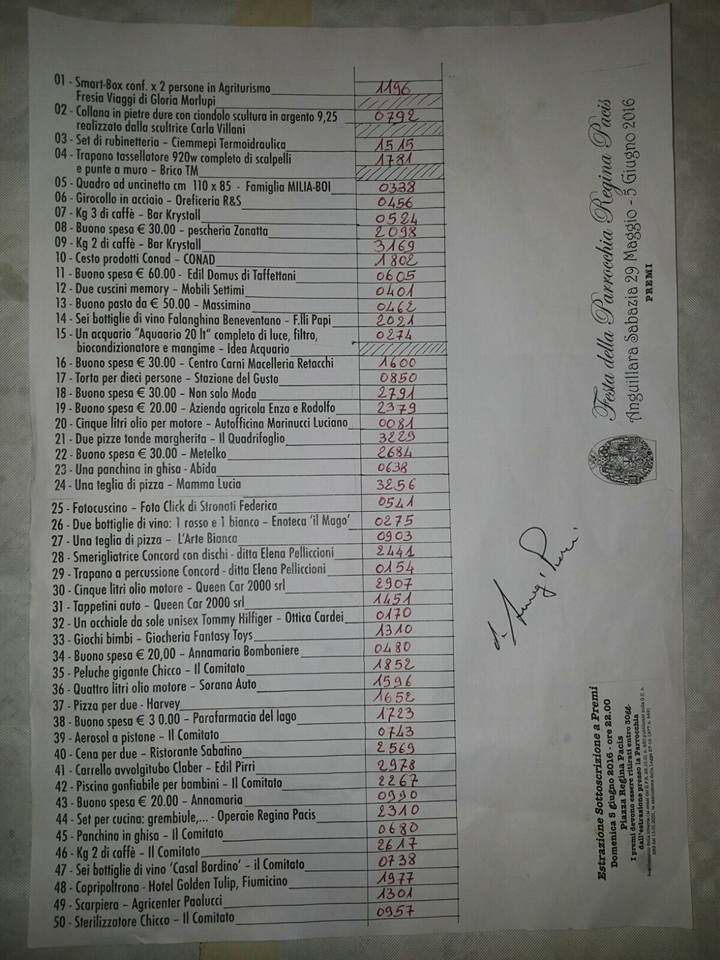 01 - Smart-Box conf. x 2 persone in Agriturismo 1196
Fresia Viaggi di Gloria Morlupi
02 - Collana in pietre dure con ciondolo scultura in argento 9,25 0792
realizzato dalla scultrice Carla Villani
03 - Set di rubinetteria - Ciemmepi Termoidraulica 1515
04 - Trapano tassellatore 920w completo di scalpelli 1781
e punte a muro - Brico TM
05 - Quadro ad uncinetto cm 110 x 85 - Famiglia MILIA-BOI 0338
06 - Girocollo in acciaio - Oreficeria R&S 0456
07 - Kg 3 di caffè - Bar Krystall 0524
08 - Buono spesa € 30.00 - pescheria Zanatta 2098
09 - Kg 2 di caffè - Bar Krystall 3169
10 - Cesto prodotti Conad - CONAD 1802
11 - Buono spesa € 60.00 - Edil Domus di Taffettani 0605
12 - Due cuscini memory - Mobili Settimi 0401
13 - Buono pasto da € 50.00 - Massimino 0462
14 - Sei bottiglie di vino Falanghina Beneventano - F.lli Papi 2021
15 - Un acquario "Aquaario 20 lt" completo di luce, filtro, 0274
biocondizionatore e mangime - Idea Acquario
16 - Buono spesa € 30.00 - Centro Carni Macelleria Retacchi 1600
17 - Torta per dieci persone - Stazione del Gusto 0850
18 - Buono spesa € 30.00 - Non solo Moda 2791
19 - Buono spesa € 20.00 - Azienda agricola Enza e Rodolfo 2379
20 - Cinque litri olio per motore - Autofficina Marinucci Luciano 0081
21 - Due pizze tonde margherita - Il Quadrifoglio 3229
22 - Buono spesa € 30.00 - Metelko 2684
23 - Una panchina in ghisa - Abida 0638
24 - Una teglia di pizza - Mamma Lucia 3256
25 - Fotocuscino - Foto Click di Stronati Federica 0541
26 - Due bottiglie di vino: 1 rosso e 1 bianco - Enoteca 'il Mago' 0275
27 - Una teglia di pizza - L'Arte Bianca 0903
28 - Smerigliatrice Concord con dischi - ditta Elena Pelliccioni 2441
29 - Trapano a percussione Concord - ditta Elena Pelliccioni 0154
30 - Cinque litri olio motore - Queen Car 2000 srl 2907
31 - Tappetini auto - Queen Car 2000 srl 1451
32 - Un occhiale da sole unisex Tommy Hilfiger - Ottica Cardei 0170
33 - Giochi bimbi - Giocheria Fantasy Toys 1310
34 - Buono spesa € 20,00 - Annamaria Bomboniere 0480
35 - Peluche gigante Chicco - Il Comitato 1852
36 - Quattro litri olio motore - Sorana Auto 1596
37 - Pizza per due - Harvey 1652
38 - Buono spesa € 3 0.00 - Parafarmacia del lago 1723
39 - Aerosol a pistone - Il Comitato 0743
40 - Cena per due - Ristorante Sabatino 2569
41 - Carrello avvolgitubo Claber - Edil Pirri 2978
42 - Piscina gonfiabile per bambini - Il Comitato 2267
43 - Buono spesa € 20.00 - Annamaria 0990
44 - Set per cucina: grembiule,... - Operaie Regina Pacis 2310
45 - Panchina in ghisa - Il Comitato 0680
46 - Kg 2 di caffè - Il Comitato 2617
47 - Sei bottiglie di vino 'Casal Bordino' - il Comitato 0738
48 - Copripoltrona - Hotel Golden Tulip, Fiumicino 1977
49 - Scarpiera - Agricenter Paolucci 1301
50 - Sterilizzatore Chicco - Il Comitato 0957
Festa della Parrocchia Regina Pacis
Anguillara Sabazia 29 Maggio - 5 Giugno 2016
PREMI
Estrazione Sottoscrizione a Premi
Domenica 5 giugno 2016 - ore 22.00
Piazza Regina Pacis
I premi devono essere ritirati entro 30gg.
dall'estrazione presso la Parrocchia